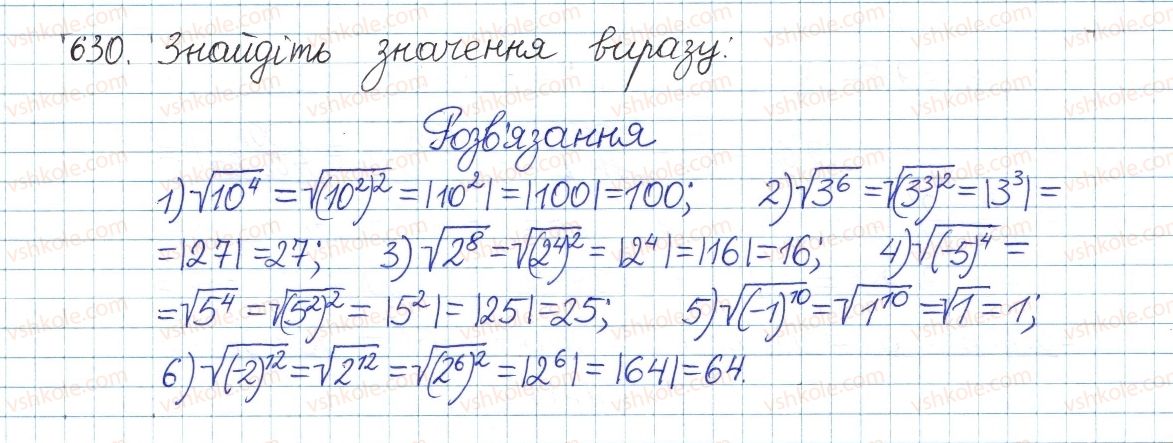 630. Знайдіть значення виразу:
Розв'язання
1) √10⁴ = √(10²)² = |10²| = |100| = 100; 2) √3⁶ = √(3³)² = |3³| =
= |27| = 27; 3) √2⁸ = √(2⁴)² = |2⁴| = |16| = 16; 4) √(-5)⁴ =
= √5⁴ = √(5²)² = |5²| = |25| = 25; 5) √(-1)¹⁰ = √1¹⁰ = √1 = 1;
6) √(-2)¹² = √2¹² = √(2⁶)² = |2⁶| = |64| = 64.
vshkole.com